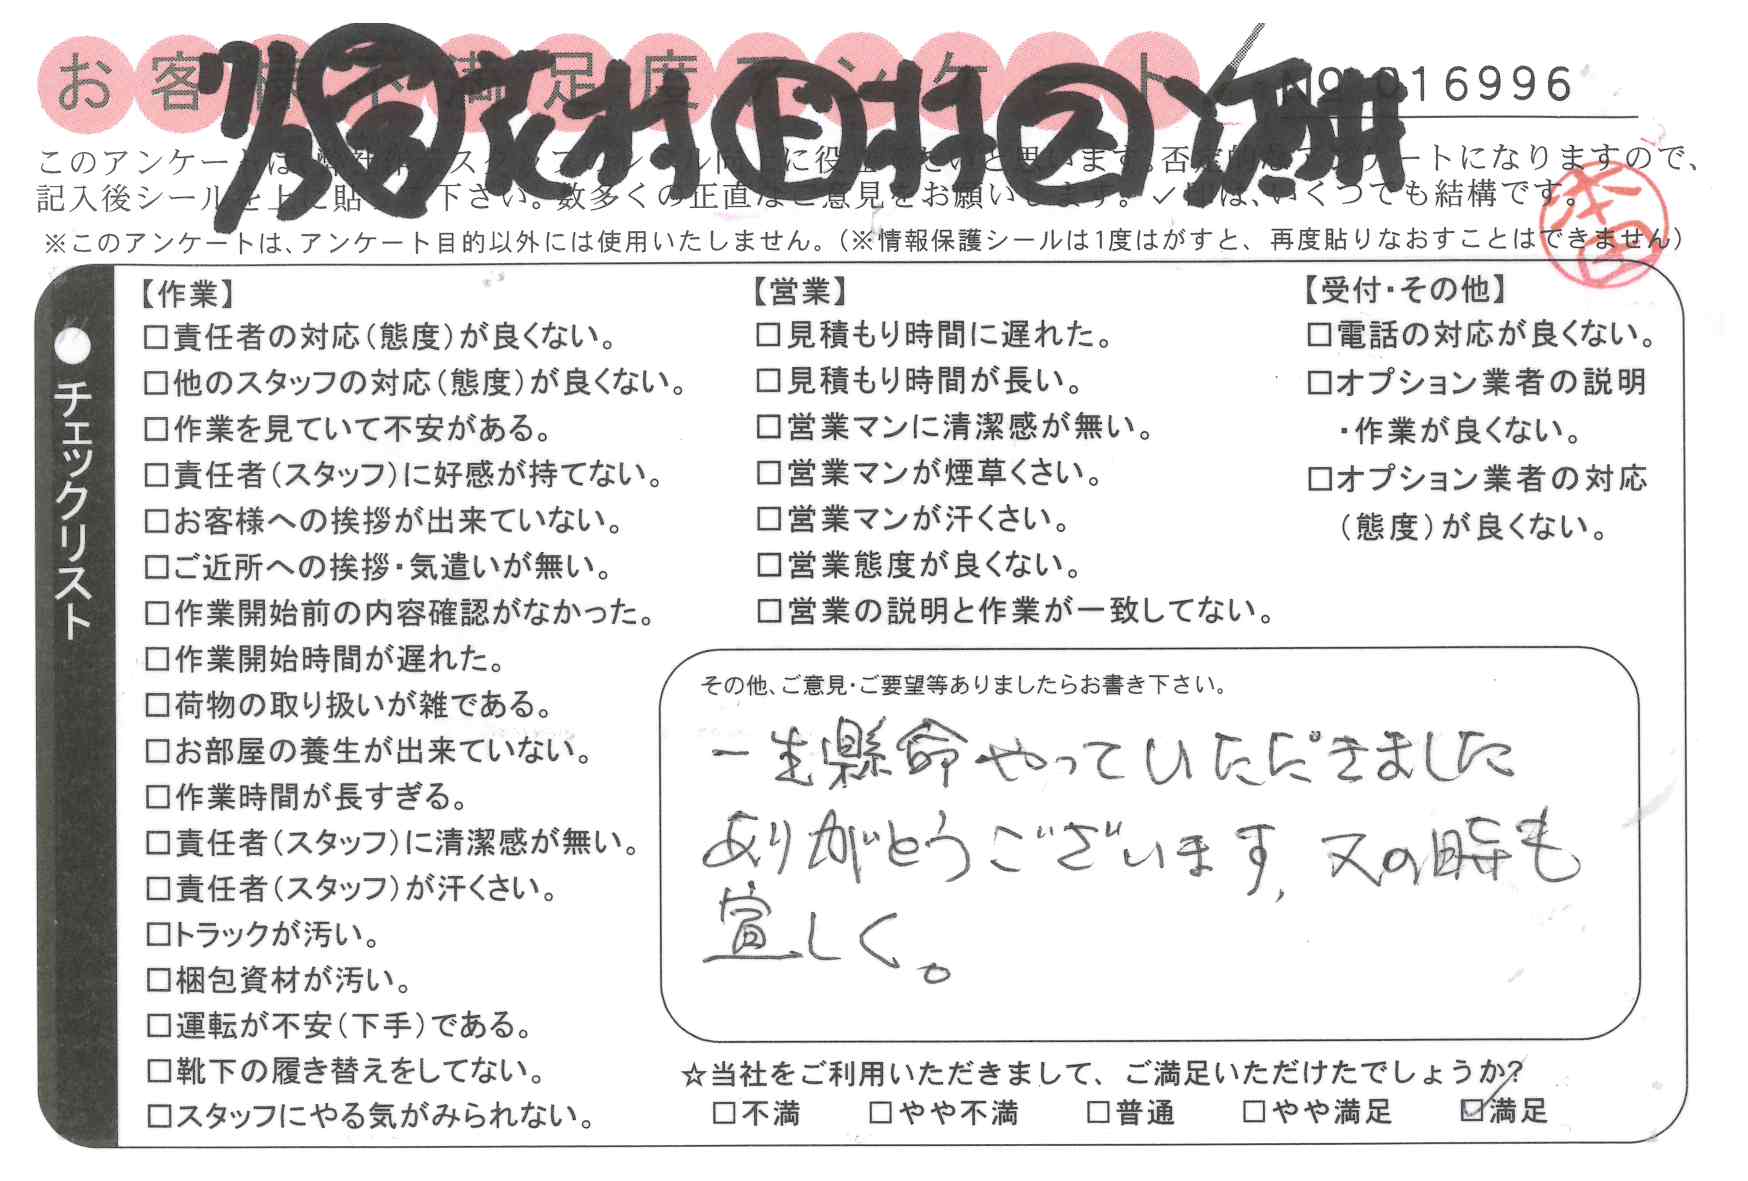 お客様不満足度アンケート
No 016996
※このアンケートは、アンケート目的以外には使用いたしません。(※情報保護シールは1度はがすと、再度貼りなおすことはできません)
●チェックリスト
【作業】
□責任者の対応(態度)が良くない。
□他のスタッフの対応(態度)が良くない。
□作業を見ていて不安がある。
□責任者(スタッフ)に好感が持てない。
□お客様への挨拶が出来ていない。
□ご近所への挨拶・気遣いが無い。
□作業開始前の内容確認がなかった。
□作業開始時間が遅れた。
□荷物の取り扱いが雑である。
□お部屋の養生が出来ていない。
□作業時間が長すぎる。
□責任者(スタッフ)に清潔感が無い。
□責任者(スタッフ)が汗くさい。
□トラックが汚い。
□梱包資材が汚い。
□運転が不安(下手)である。
□靴下の履き替えをしてない。
□スタッフにやる気がみられない。
【営業】
□見積もり時間に遅れた。
□見積もり時間が長い。
□営業マンに清潔感が無い。
□営業マンが煙草くさい。
□営業マンが汗くさい。
□営業態度が良くない。
□営業の説明と作業が一致してない。
【受付・その他】
□電話の対応が良くない。
□オプション業者の説明
・作業が良くない。
□オプション業者の対応
(態度)が良くない。
その他、ご意見・ご要望等ありましたらお書き下さい。
一生懸命やっていただきました
ありがとうございます,又の時も
宜しく。
☆当社をご利用いただきまして、ご満足いただけたでしょうか?
□不満 □やや不満 □普通 □やや満足 ☑満足